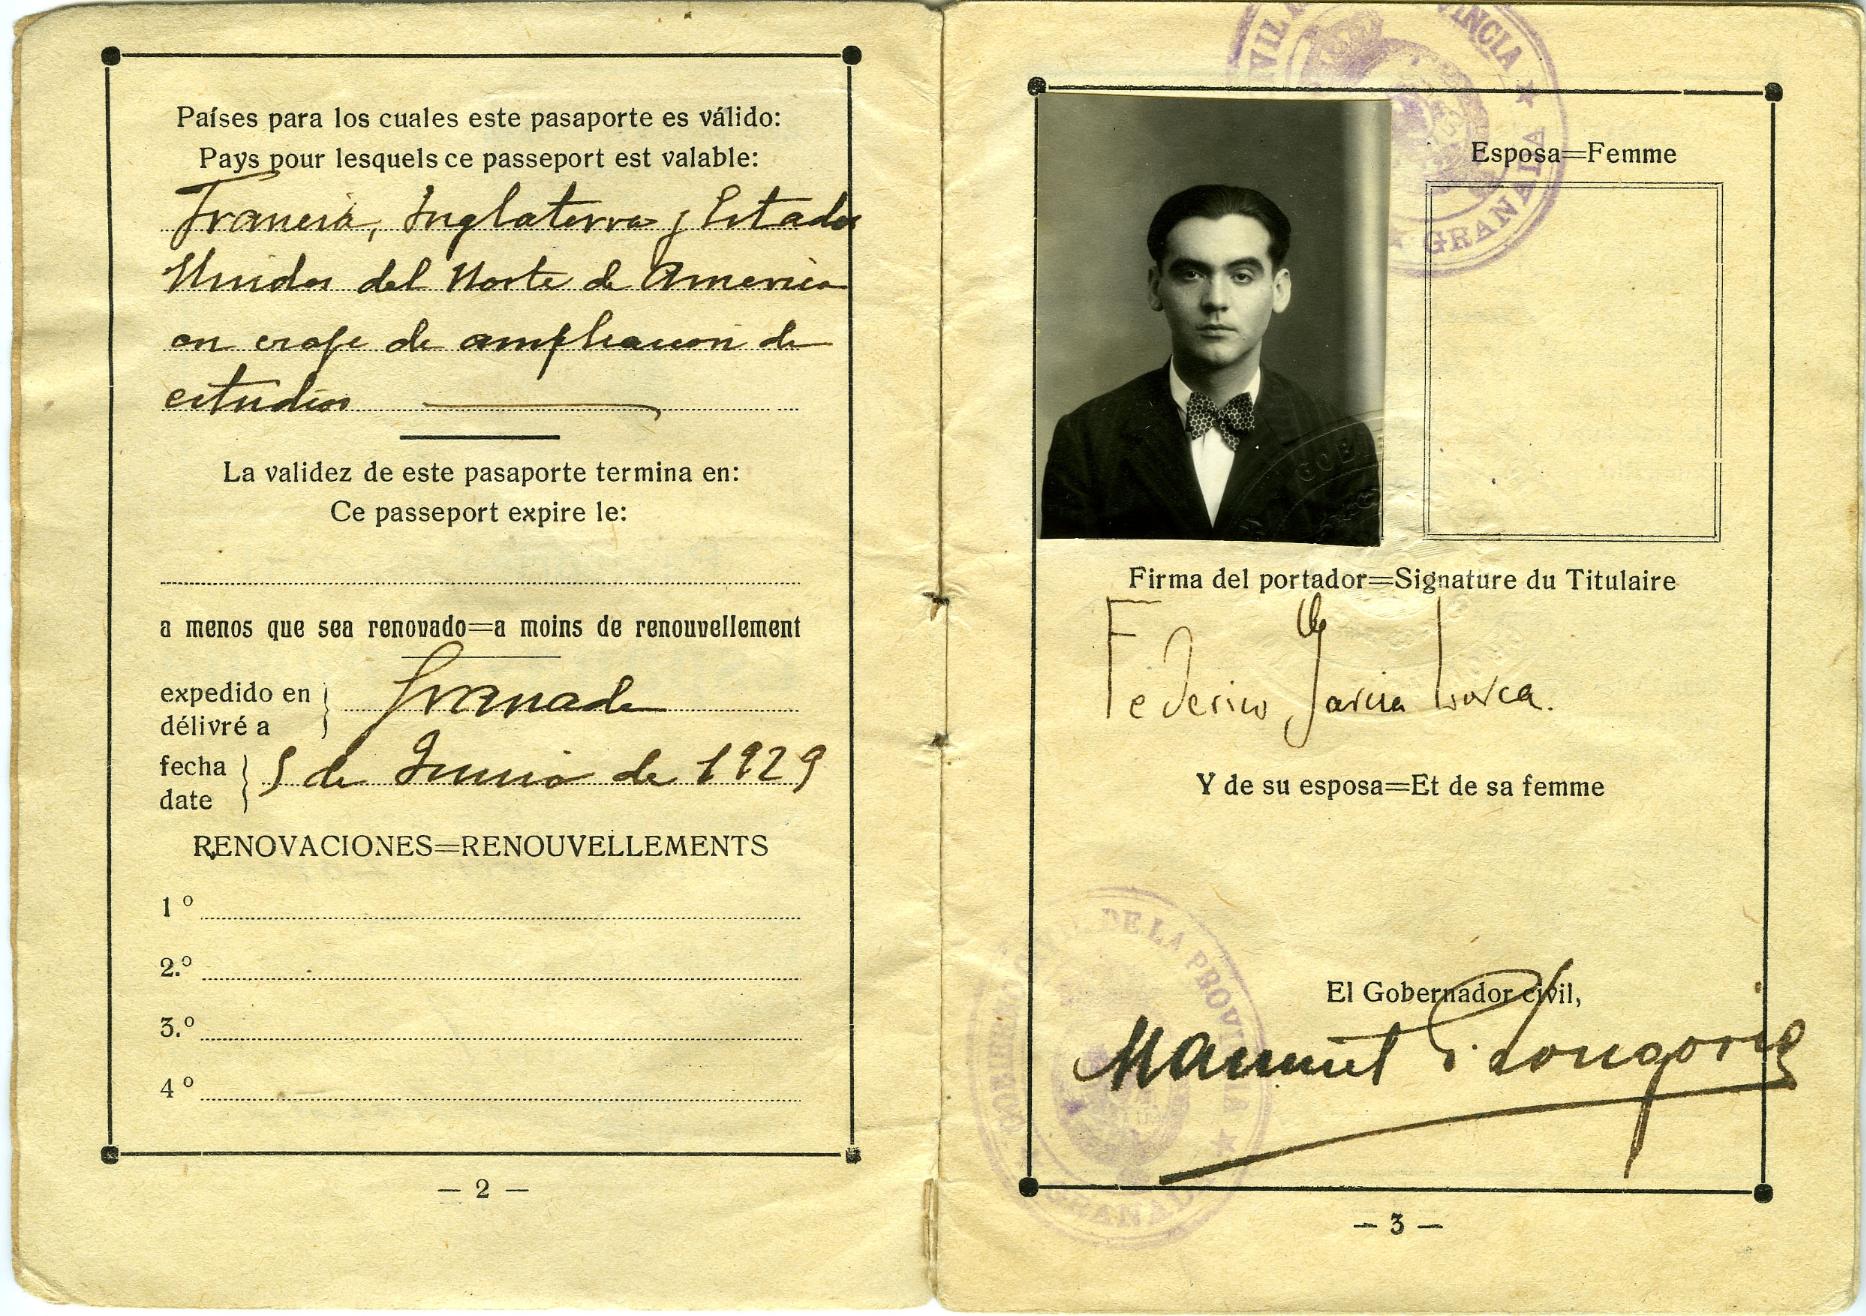 Países para los cuales este pasaporte es válido:
Pays pour lesquels ce passeport est valable:
Francia, Inglaterra y Estados
Unidos del Norte de America
en viaje de ampliacion de
estudios
La validez de este pasaporte termina en:
Ce passeport expire le:
a menos que sea renovado=a moins de renouvellement
expedido en
délivré a
Granada
fecha
date
5 de Junio de 1929
RENOVACIONES=RENOUVELLEMENTS
1º
2.º
3.º
4º
— 2 —
CIVIL PROVINCIA
GRANADA
Esposa=Femme
Firma del portador=Signature du Titulaire
Federico García Lorca.
Y de su esposa=Et de sa femme
El Gobernador civil,
Manuel Longoria
GOBIERNO CIVIL DE LA PROVINCIA
GRANADA
— 3 —